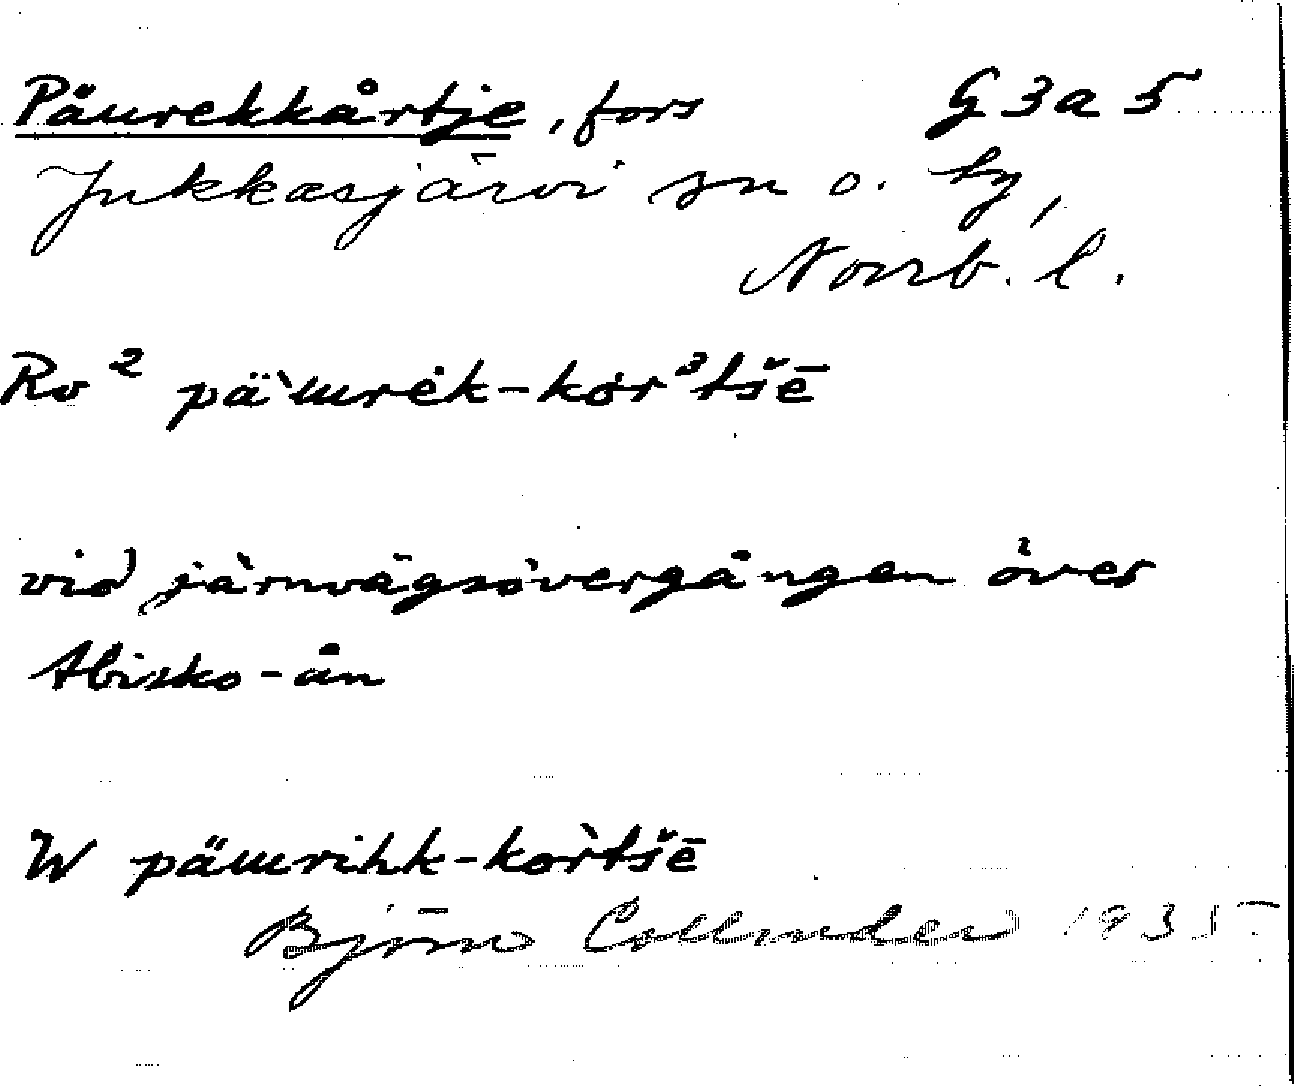 Päurekkårtje, fors G 3 a 5
Jukkasjärvi sn o. ty,
Norrb. l.
Ro² pä̀ɯrėk-kor³tšē
vid järnvägsövergången över
Abisko-ån
W päɯrihk-kor̀tšē
Björn Collinder 1935